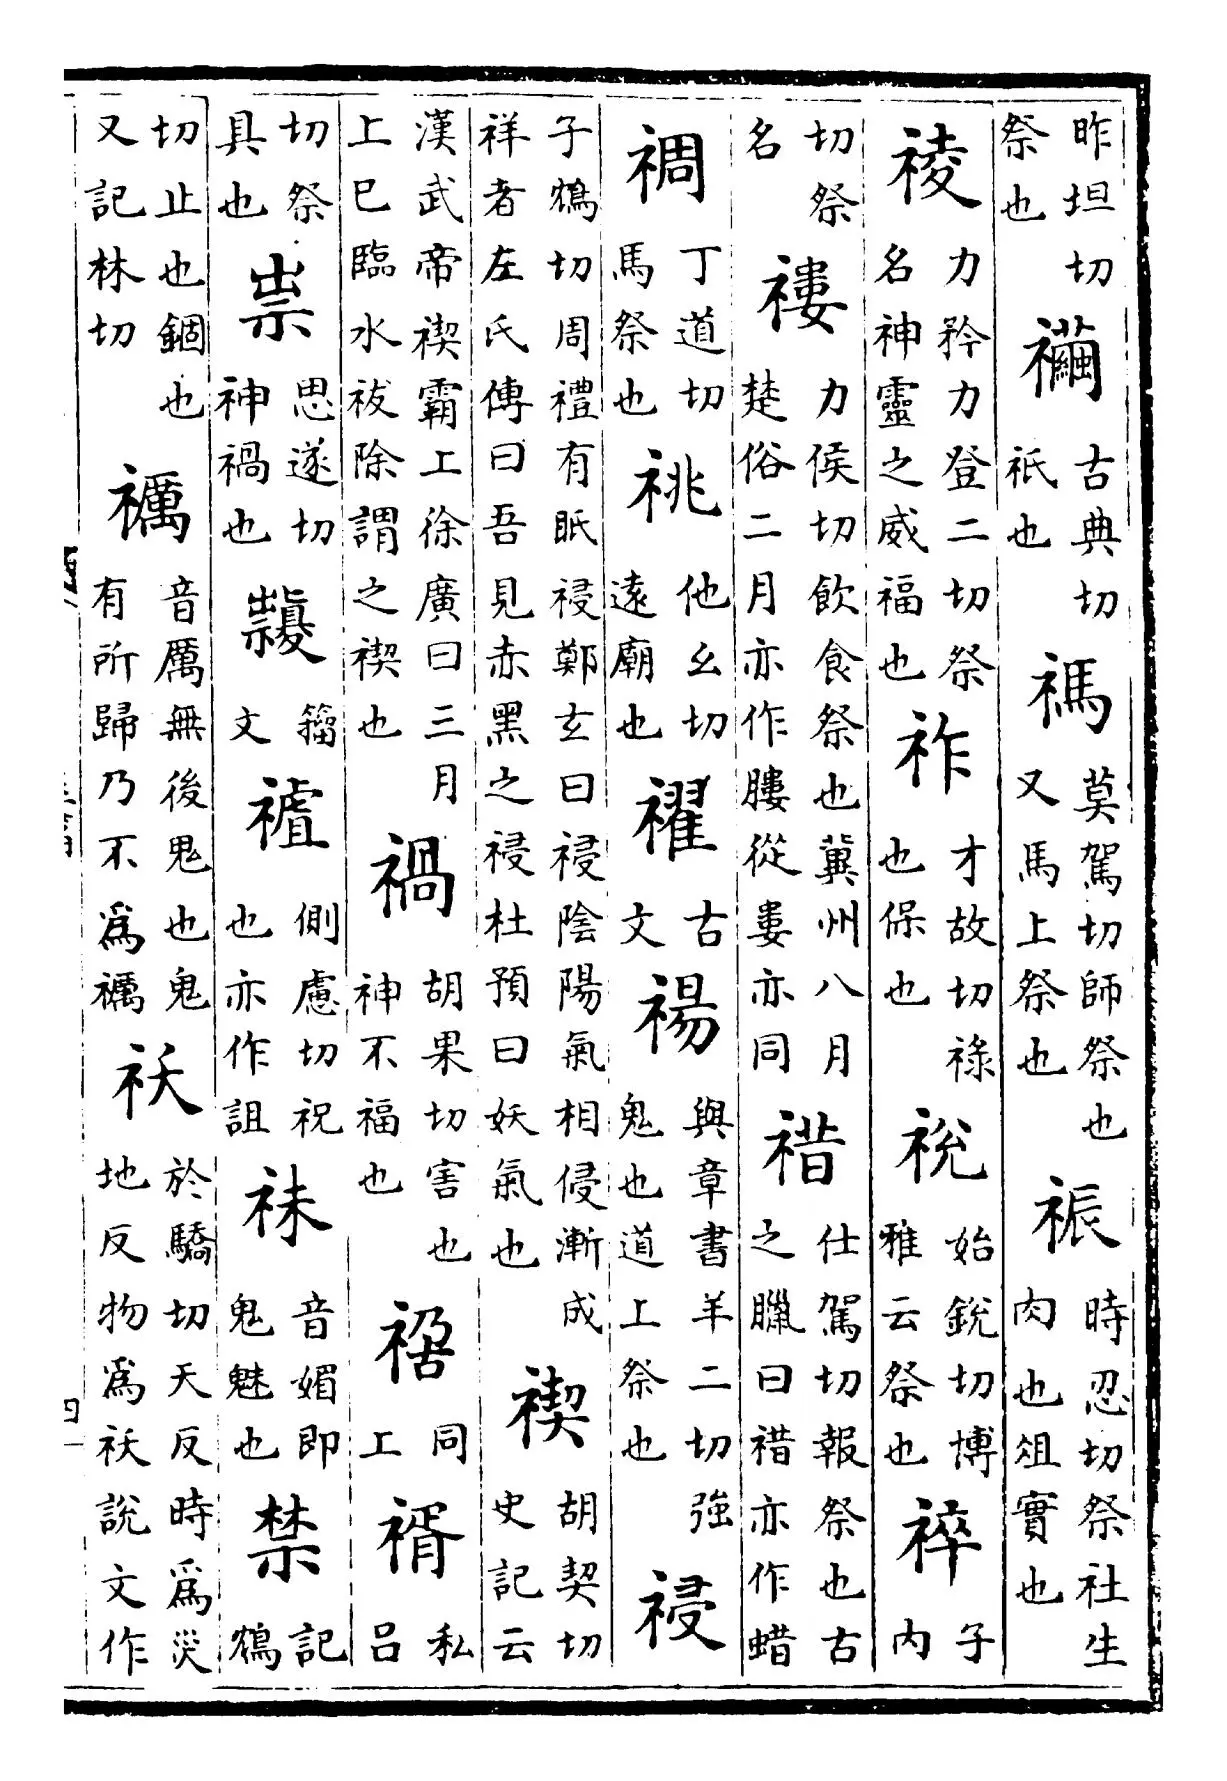 昨坦切祭也　古典切祇也禡莫駕切師祭也又馬上祭也祳時忍切祭社生肉也俎實也
祾力矜力登二切祭名神靈之威福也祚才故切祿也保也祱始銳切博雅云祭也祽子內
切祭名䄛力侯切飲食祭也冀州八月楚俗二月亦作膢從婁亦同䄍仕駕切報祭也古之臘曰䄍亦作蜡
禂丁道切馬祭也祧他幺切遠廟也　古文禓與章書羊二切強鬼也道上祭也祲
子鴆切周禮有眂祲鄭玄曰祲陰陽氣相侵漸成祥者左氏傳曰吾見赤黑之祲杜預曰妖氣也禊胡契切史記云
漢武帝禊霸上徐廣曰三月上巳臨水祓除謂之禊也禍胡果切害也神不福也　同上　私呂
切祭具也祟思遂切神禍也　籀文　側慮切祝也亦作詛　音媚即鬼魅也禁記鴆
切止也錮也又記林切禲音厲無後鬼也鬼有所歸乃不爲禲祅於驕切天反時爲災地反物爲祅說文作